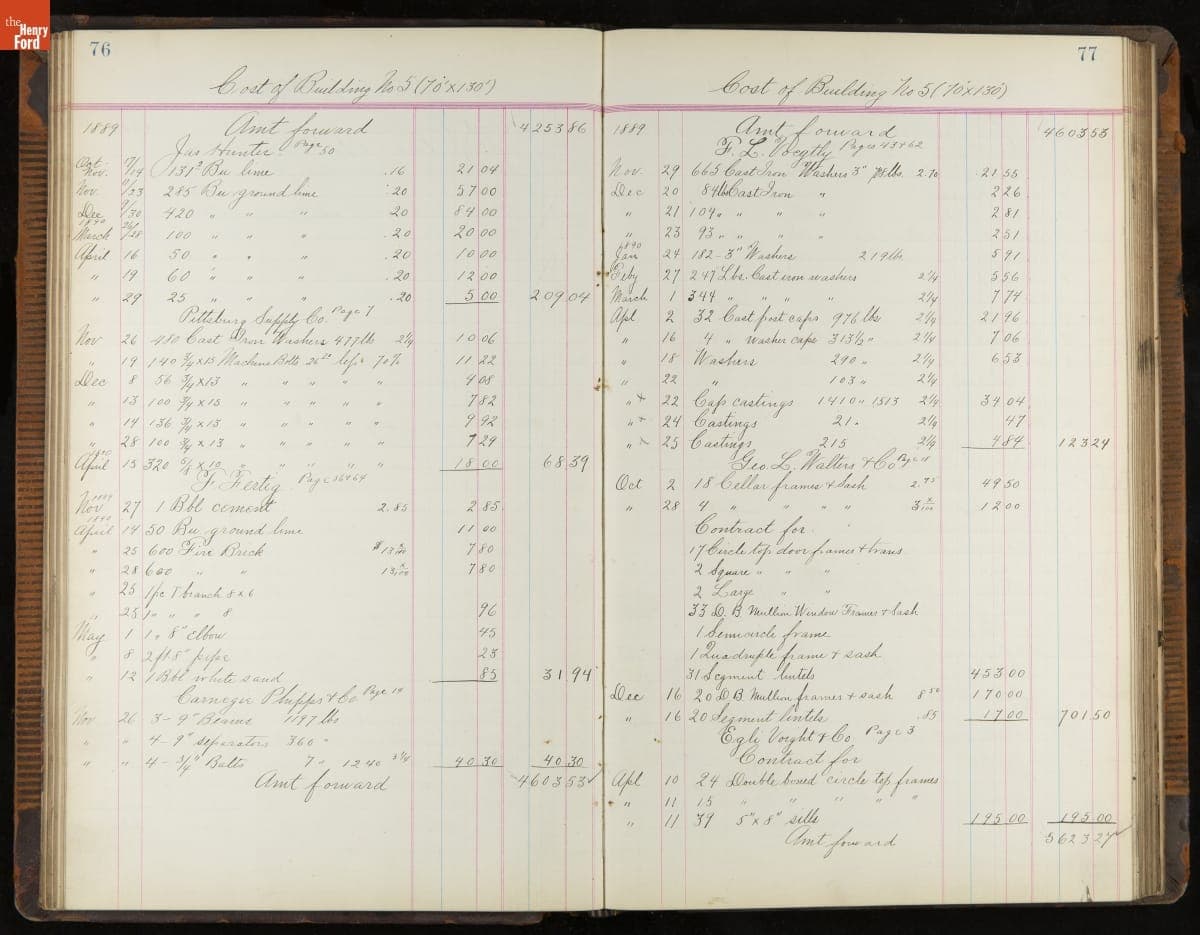 the Henry Ford
76
Cost of Building No 5 (70'x130')
1889 Amt forward 4253 86
Jas Hunter Page 50
Oct Nov. 131² Bu lime .16 21 04
Nov. 285 Bu ground lime .20 57 00
Dec 420 " " " .20 84 00
1890
March 100 " " " .20 20 00
April 16 50 " " " .20 10 00
" 19 60 " " " .20 12 00
" 29 25 " " " .20 5 00 209 04
Pittsburg Supply Co. Page 7
Nov 26 480 Cast Iron Washers 477 lbs 2¼ 10 06
" 19 140 ¾x15 Machine Bolts 70% 11 22
Dec 8 56 ¾x13 " " " " " 4 08
" 13 100 ¾x15 " " " " " 7 82
" 14 136 ¾x15 " " " " " 9 92
" 28 100 ¾x13 " " " " " 7 29
1890
April 15 320 x10 " " " " " 18 00 68.39
F Fertig Page
1889
Nov 27 1 Bbl cement 2.85 2 85
1890
April 14 50 Bu ground lime 11 00
" 25 600 Fire Brick 7 80
" 28 600 " " 7 80
" 25 1pc T branch 8x6
" 25 1 " " " 8 96
May 1 1 " 8" elbow 45
" 8 2 ft 8" pipe 23
" 12 1 Bbl white sand 85 31 94
Carnegie Phipps & Co. Page 19
Nov 26 3 - 9" Beams 1197 lbs
" " 4 - 9" separators 36 "
" " 4 - ¾" Bolts 7 " 1240 3¼ 40 30 40.30
Amt forward 4603 53 ✓
77
Cost of Building No 5 (70'x130')
1889 Amt forward 4603 53
F. L. Voegtly Pages 43+62
Nov. 29 665 Cast Iron Washers 3" lbs. 2.70 21 55
Dec 20 84 lbs Cast Iron " 2 26
" 21 104 " " " " 2 81
" 23 93 " " " " 2 51
1890
Jan 24 182 - 3" Washers 219 lbs 5 91
Feby 27 247 Lbs. Cast iron washers 2¼ 5 56
March 1 344 " " " " 2¼ 7 74
Apl 2 32 Cast post caps 976 lbs 2¼ 21 96
" 16 4 " washer caps 313½ " 2¼ 7 06
" 18 Washers 290 " 2¼ 6 53
" 22 " 103 " 2¼
" x 22 Cap castings 1410 " 1513 2¼ 34 04
" x 24 Castings 21 " 2¼ 47
" x 25 Castings 215 2¼ 4 84 123 24
Geo. L. Walters & Co Page 11
Oct 2 18 Cellar frames & sash 2.75 49 50
" 28 4 " " " " 12 00
Contract for
17 Circle top door frames & trans
2 Square " " "
2 Large " "
33 D. B. Mullion Window Frames & Sash
1 Semicircle frame
1 Quadruple frame & sash
31 Segment lintels 453 00
Dec 16 20 D. B. Mullion frames & sash 8 50 170 00
" 16 20 Segment lintels .85 17 00 701 50
Egli Voight & Co. Page 3
Contract for
Apl 10 24 Double boxed circle top frames
" 11 15 " " " " "
" 11 39 5"x8" sills 195 00 195 00
Amt forward 5623 27 ✓